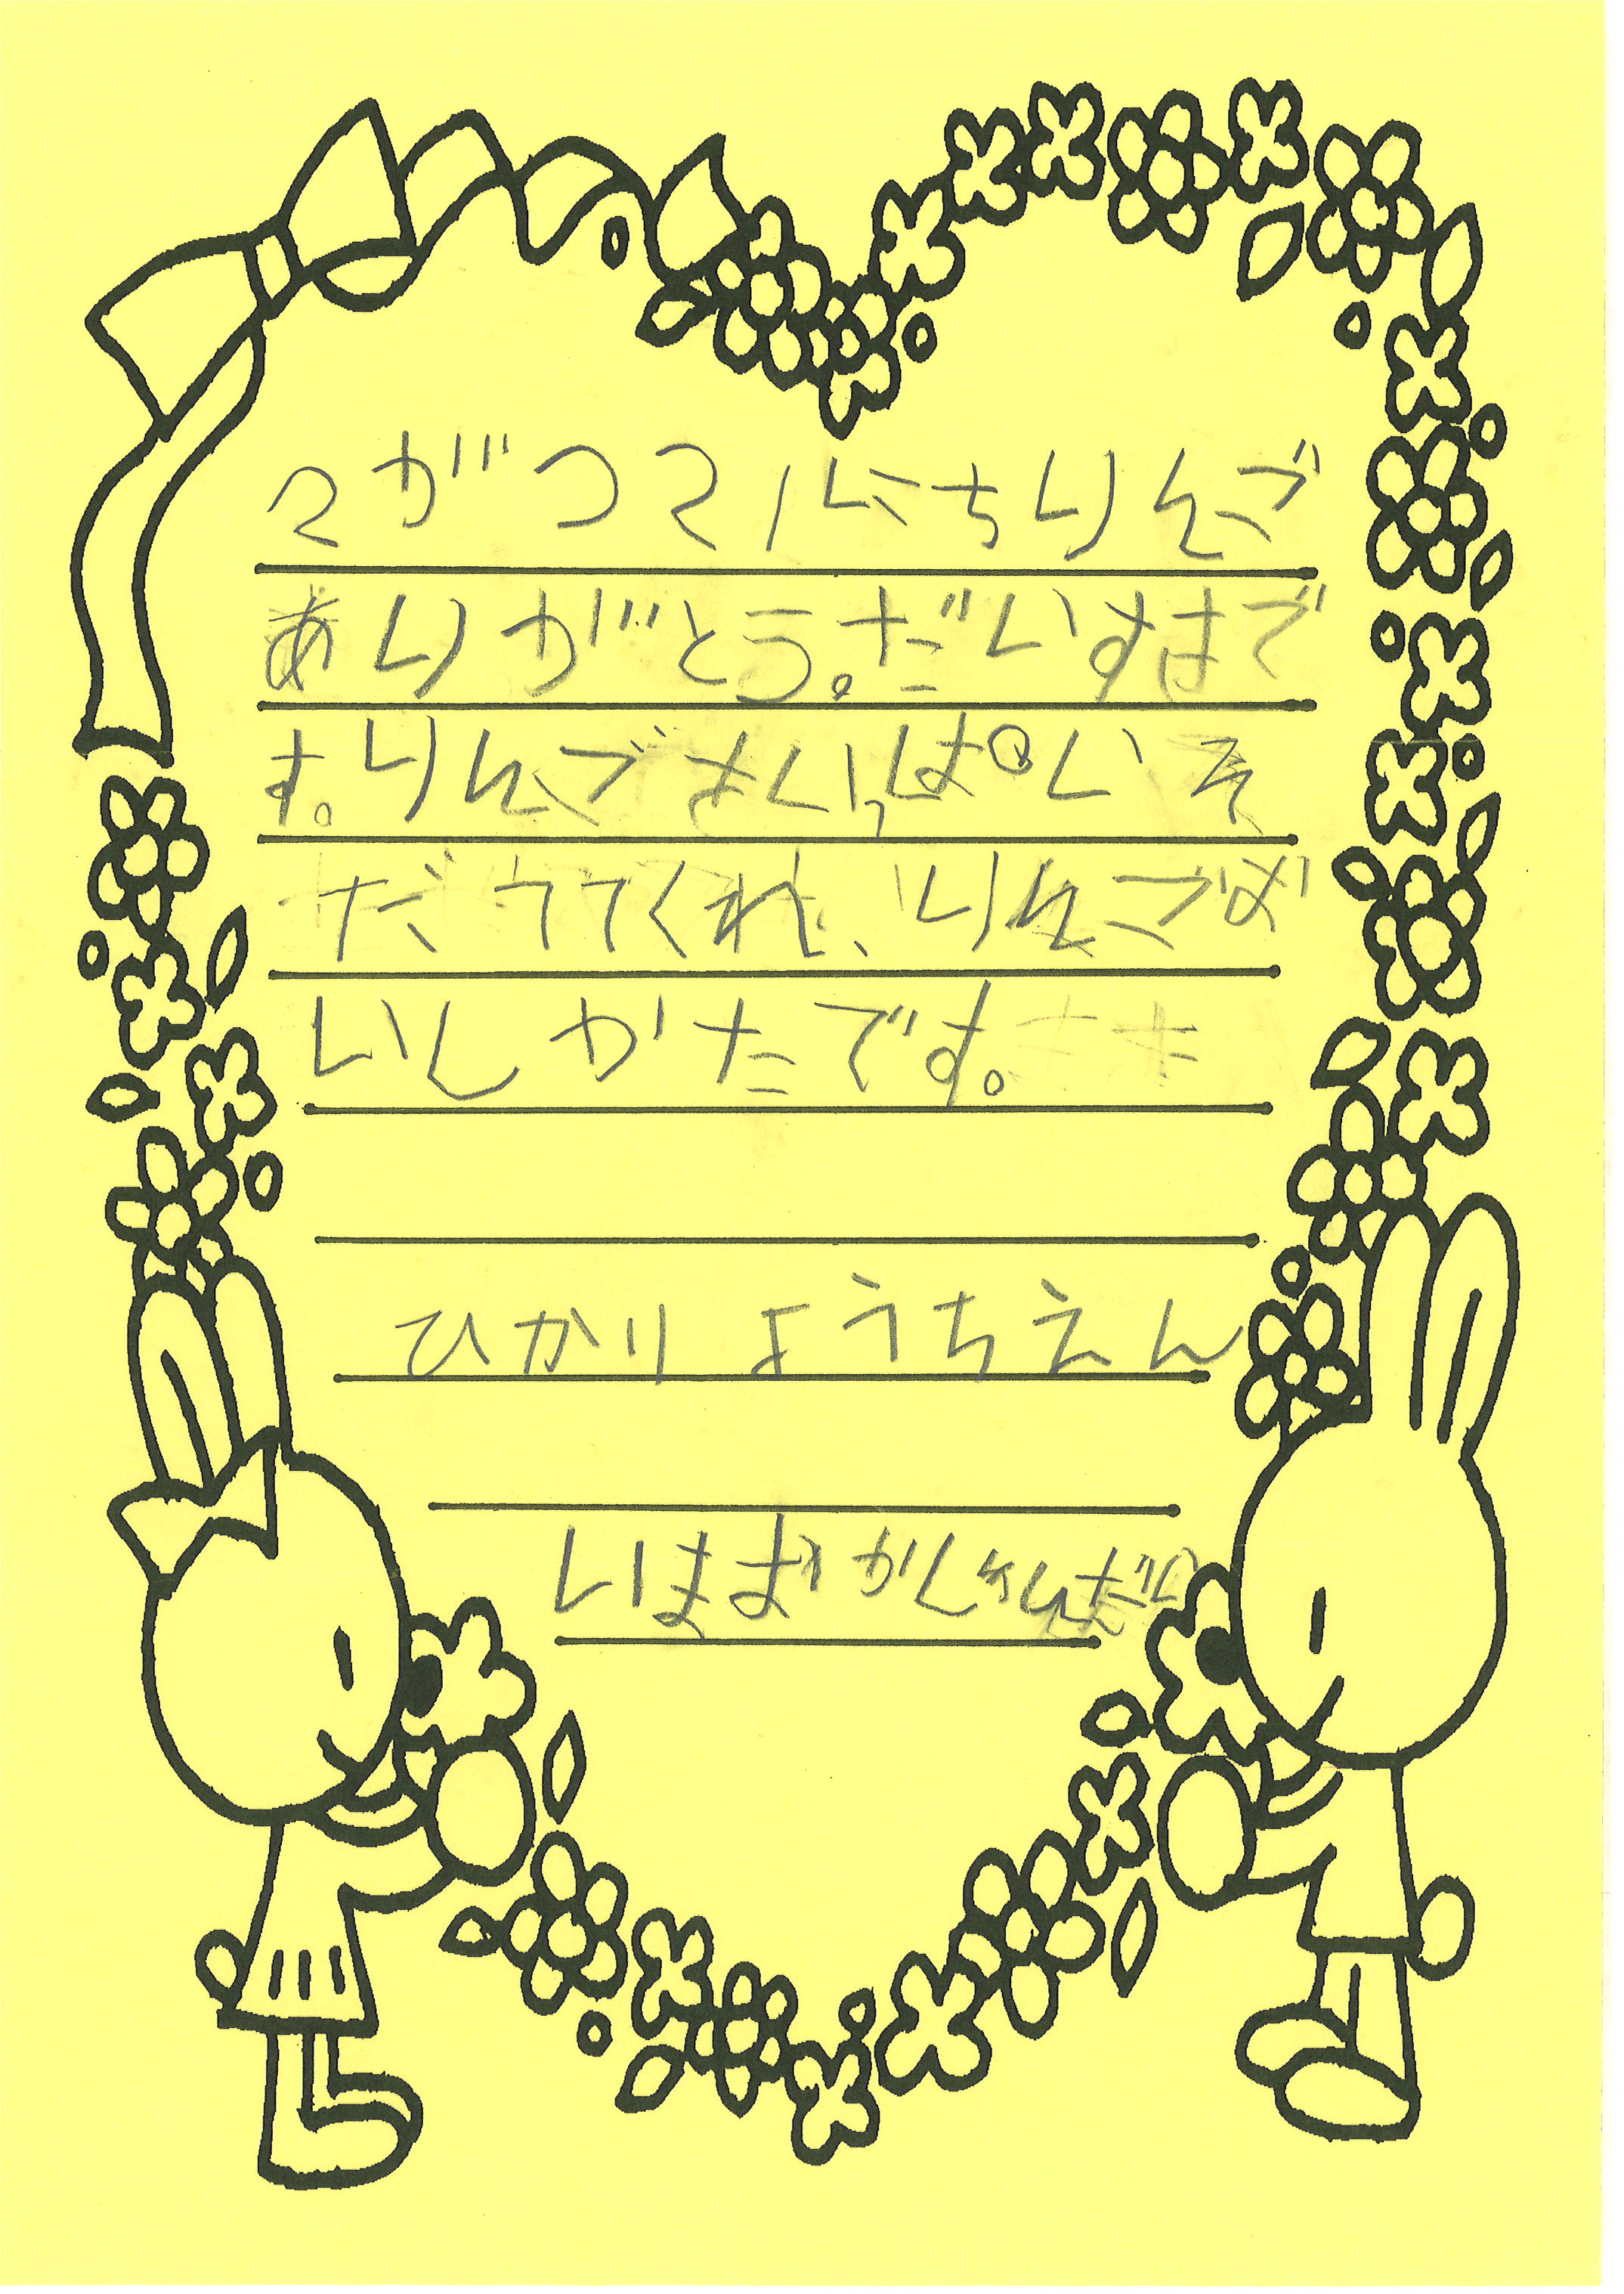 2がつ21にちりんご
ありがとう。だいすきで
す。りんごさいっぱいそ
だててくれ、りんごお
いしかたです。
ひかりようちえん
いま